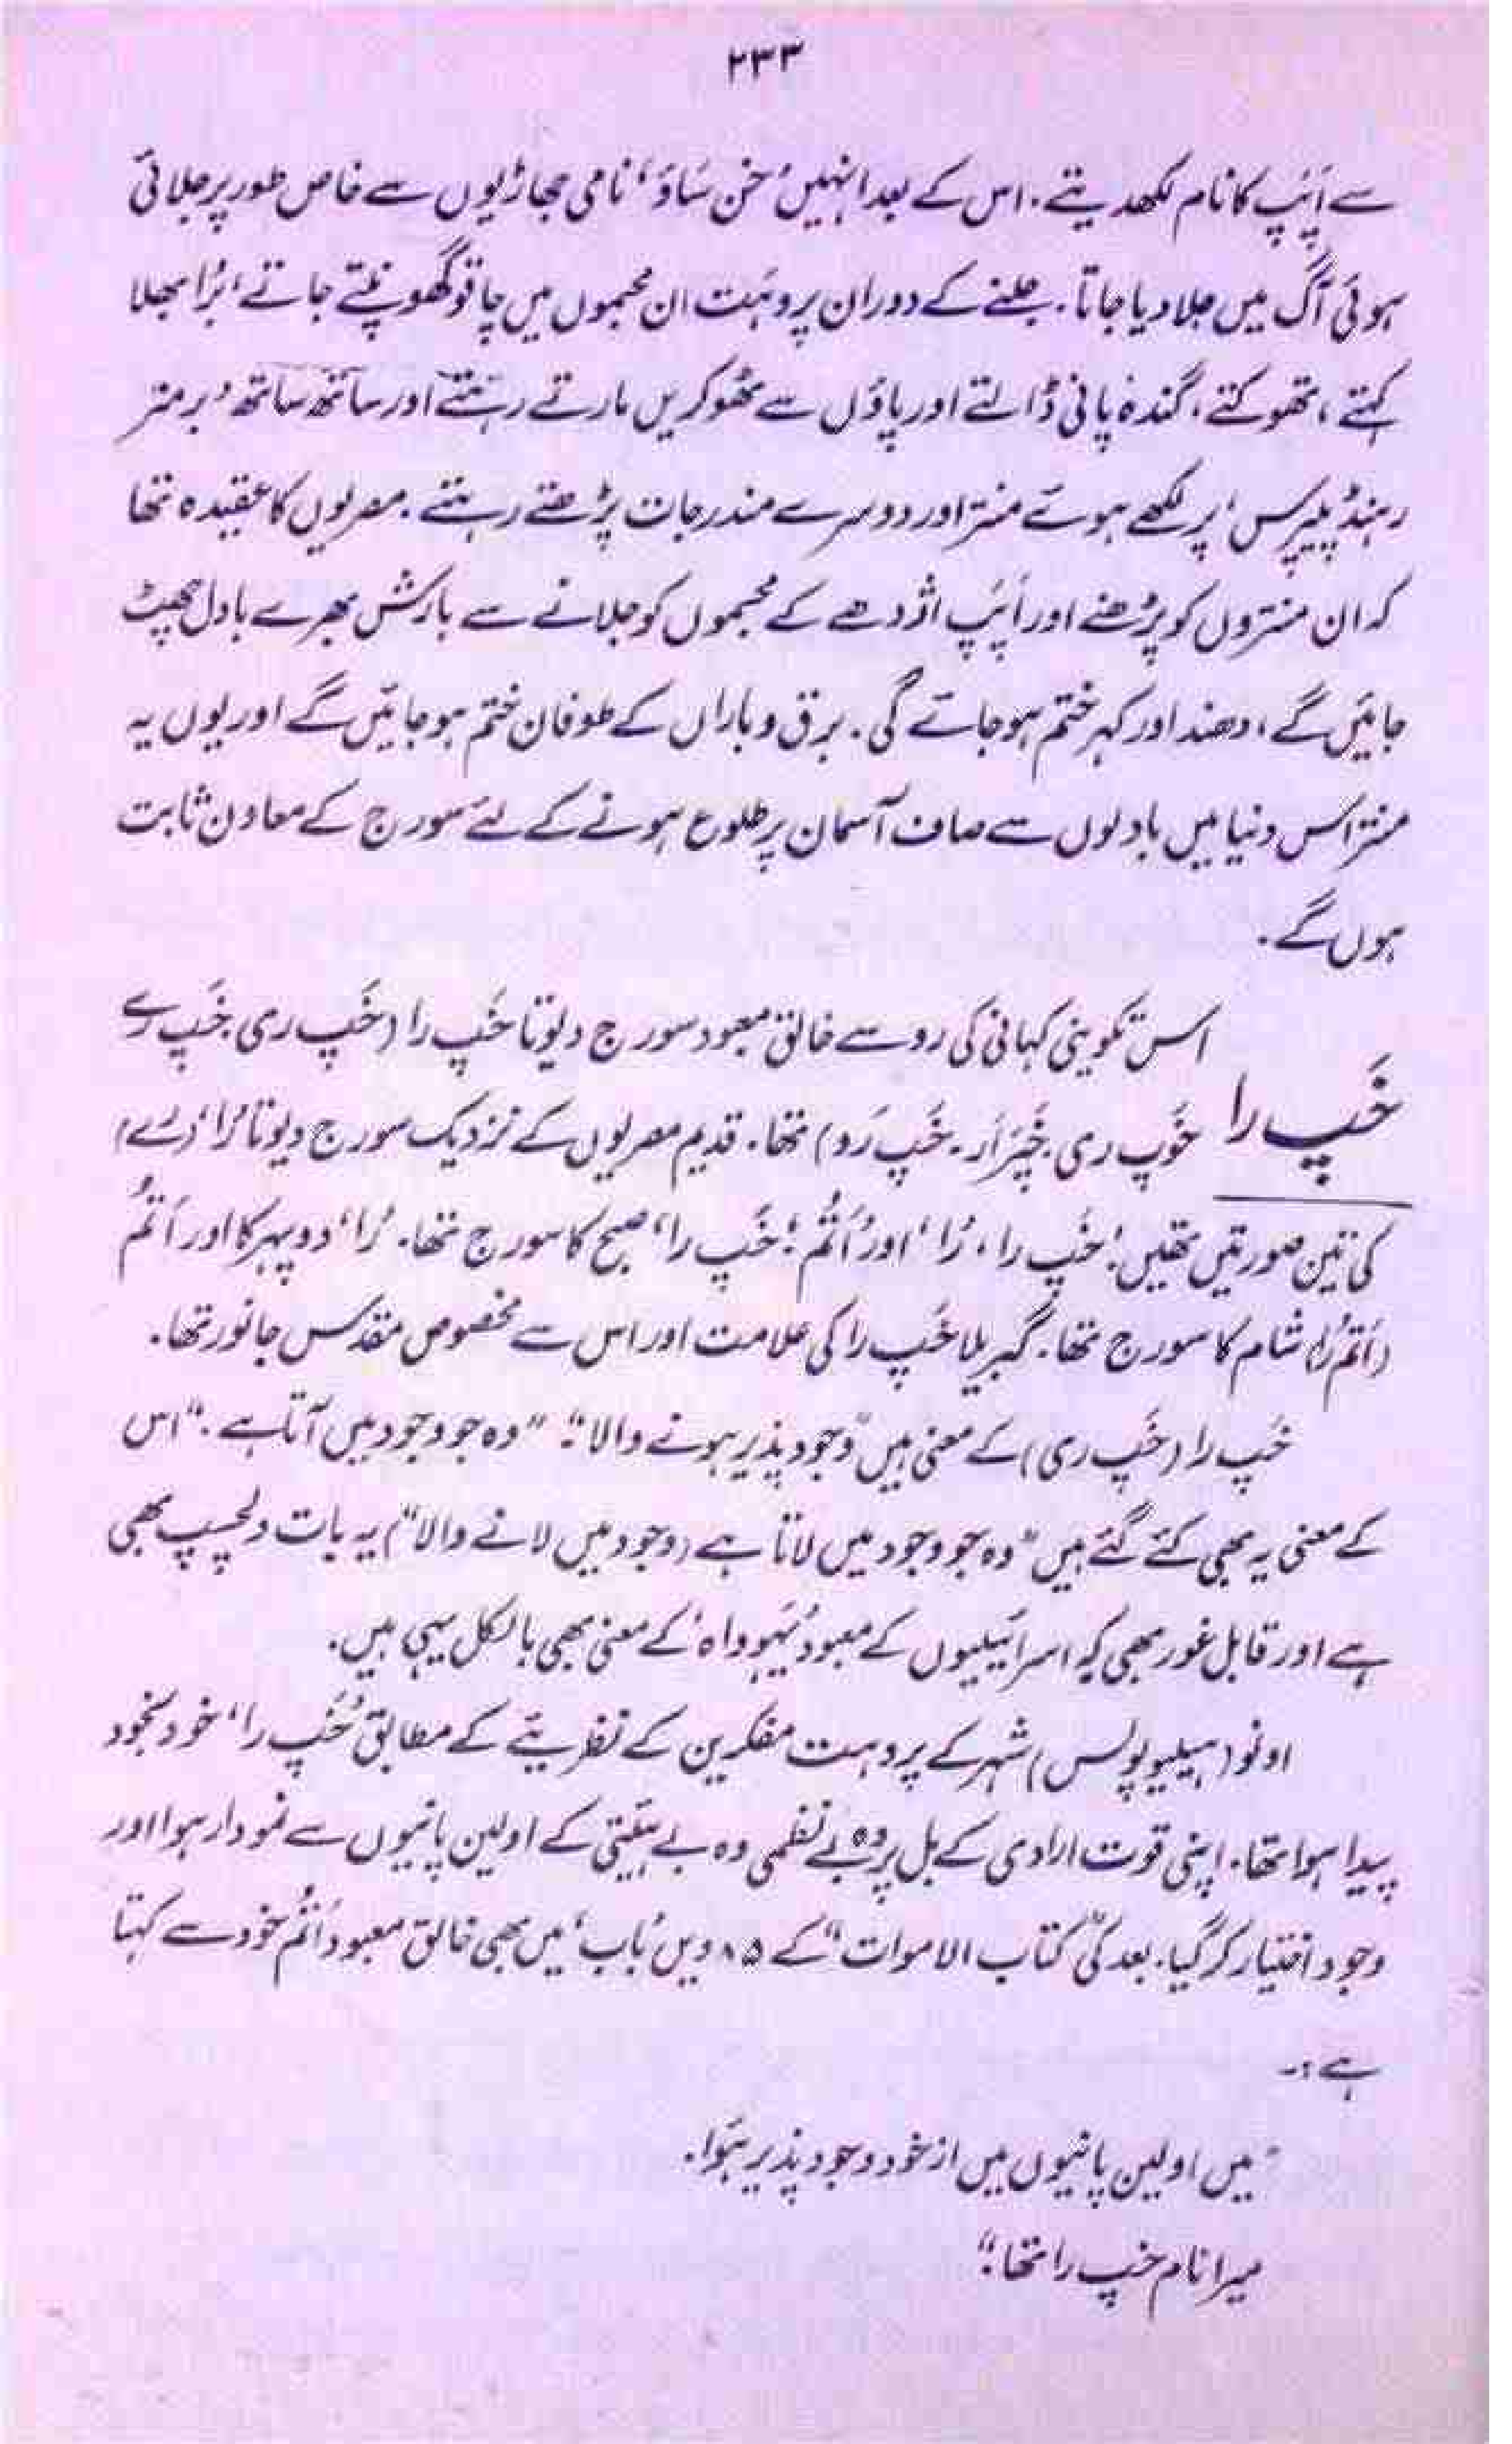 ۲۳۳
سے اَپَپ کا نام لکھ دیتے۔ اس کے بعد انہیں 'خن سَاوَ' نامی جھاڑیوں سے خاص طور پر جلائی
ہوئی آگ میں جلا دیا جاتا۔ جلنے کے دوران پروہَت ان مجسموں میں چاقو گھونپتے جاتے، بُرا بھلا
کہتے، تھوکتے، گندہ پانی ڈالتے اور پاؤں سے ٹھوکریں مارتے رہتے اور ساتھ ساتھ 'برمنر
رہنڈ پیپرس' پر لکھے ہوئے منتر اور دوسرے مندرجات پڑھتے رہتے۔ مصریوں کا عقیدہ تھا
کہ ان منتروں کو پڑھنے اور اَپَپ اژدھے کے مجسموں کو جلانے سے بارش بھرے بادل چھٹ
جائیں گے، دھند اور کہر ختم ہو جائے گی۔ برق و باراں کے طوفان ختم ہو جائیں گے اور یوں یہ
منتر اس دنیا میں بادلوں سے صاف آسمان پر طلوع ہونے کے لئے سورج کے معاون ثابت
ہوں گے۔
خَپ را
اس تکوینی کہانی کی رو سے خالق معبود سورج دیوتا خَپ را (خَپ ری، خَپ رے
خَوپ ری، خَپِرَاَر۔ خَپ رَو) تھا۔ قدیم مصریوں کے نزدیک سورج دیوتا 'رَا' (رَے)
کی تین صورتیں تھیں 'خَپ را'، 'رَا' اور 'اَتُم'؛ 'خَپ را' صبح کا سورج تھا۔ 'رَا' دوپہر کا اور 'اَتُم
(اَتم رَا) شام کا سورج تھا۔ گبریلا خَپ را کی علامت اور اس سے مخصوص مقدس جانور تھا۔
خَپ را (خَپ ری) کے معنی ہیں "وجود پذیر ہونے والا"۔ "وہ جو وجود میں آتا ہے۔" اس
کے معنی یہ بھی کئے گئے ہیں "وہ جو وجود میں لاتا ہے (وجود میں لانے والا") یہ بات دلچسپ بھی
ہے اور قابل غور بھی کہ اسرائیلیوں کے معبود 'یَہوواہ' کے معنی بھی بالکل یہی ہیں۔
اونو (ہیلیوپولس) شہر کے پروہت مفکرین کے نظریئے کے مطابق 'خَپ را' خود بخود
پیدا ہوا تھا۔ اپنی قوت ارادی کے بل پر وہ بے نظمی وہ بے ہیئتی کے اولین پانیوں سے نمودار ہوا اور
وجود اختیار کر گیا۔ بعد کی "کتاب الاموات" کے ۸۵ ویں 'باب' میں بھی خالق معبود اَتُم خود سے کہتا
ہے:۔
"میں اولین پانیوں میں از خود وجود پذیر ہَوا۔
میرا نام خپ را تھا"